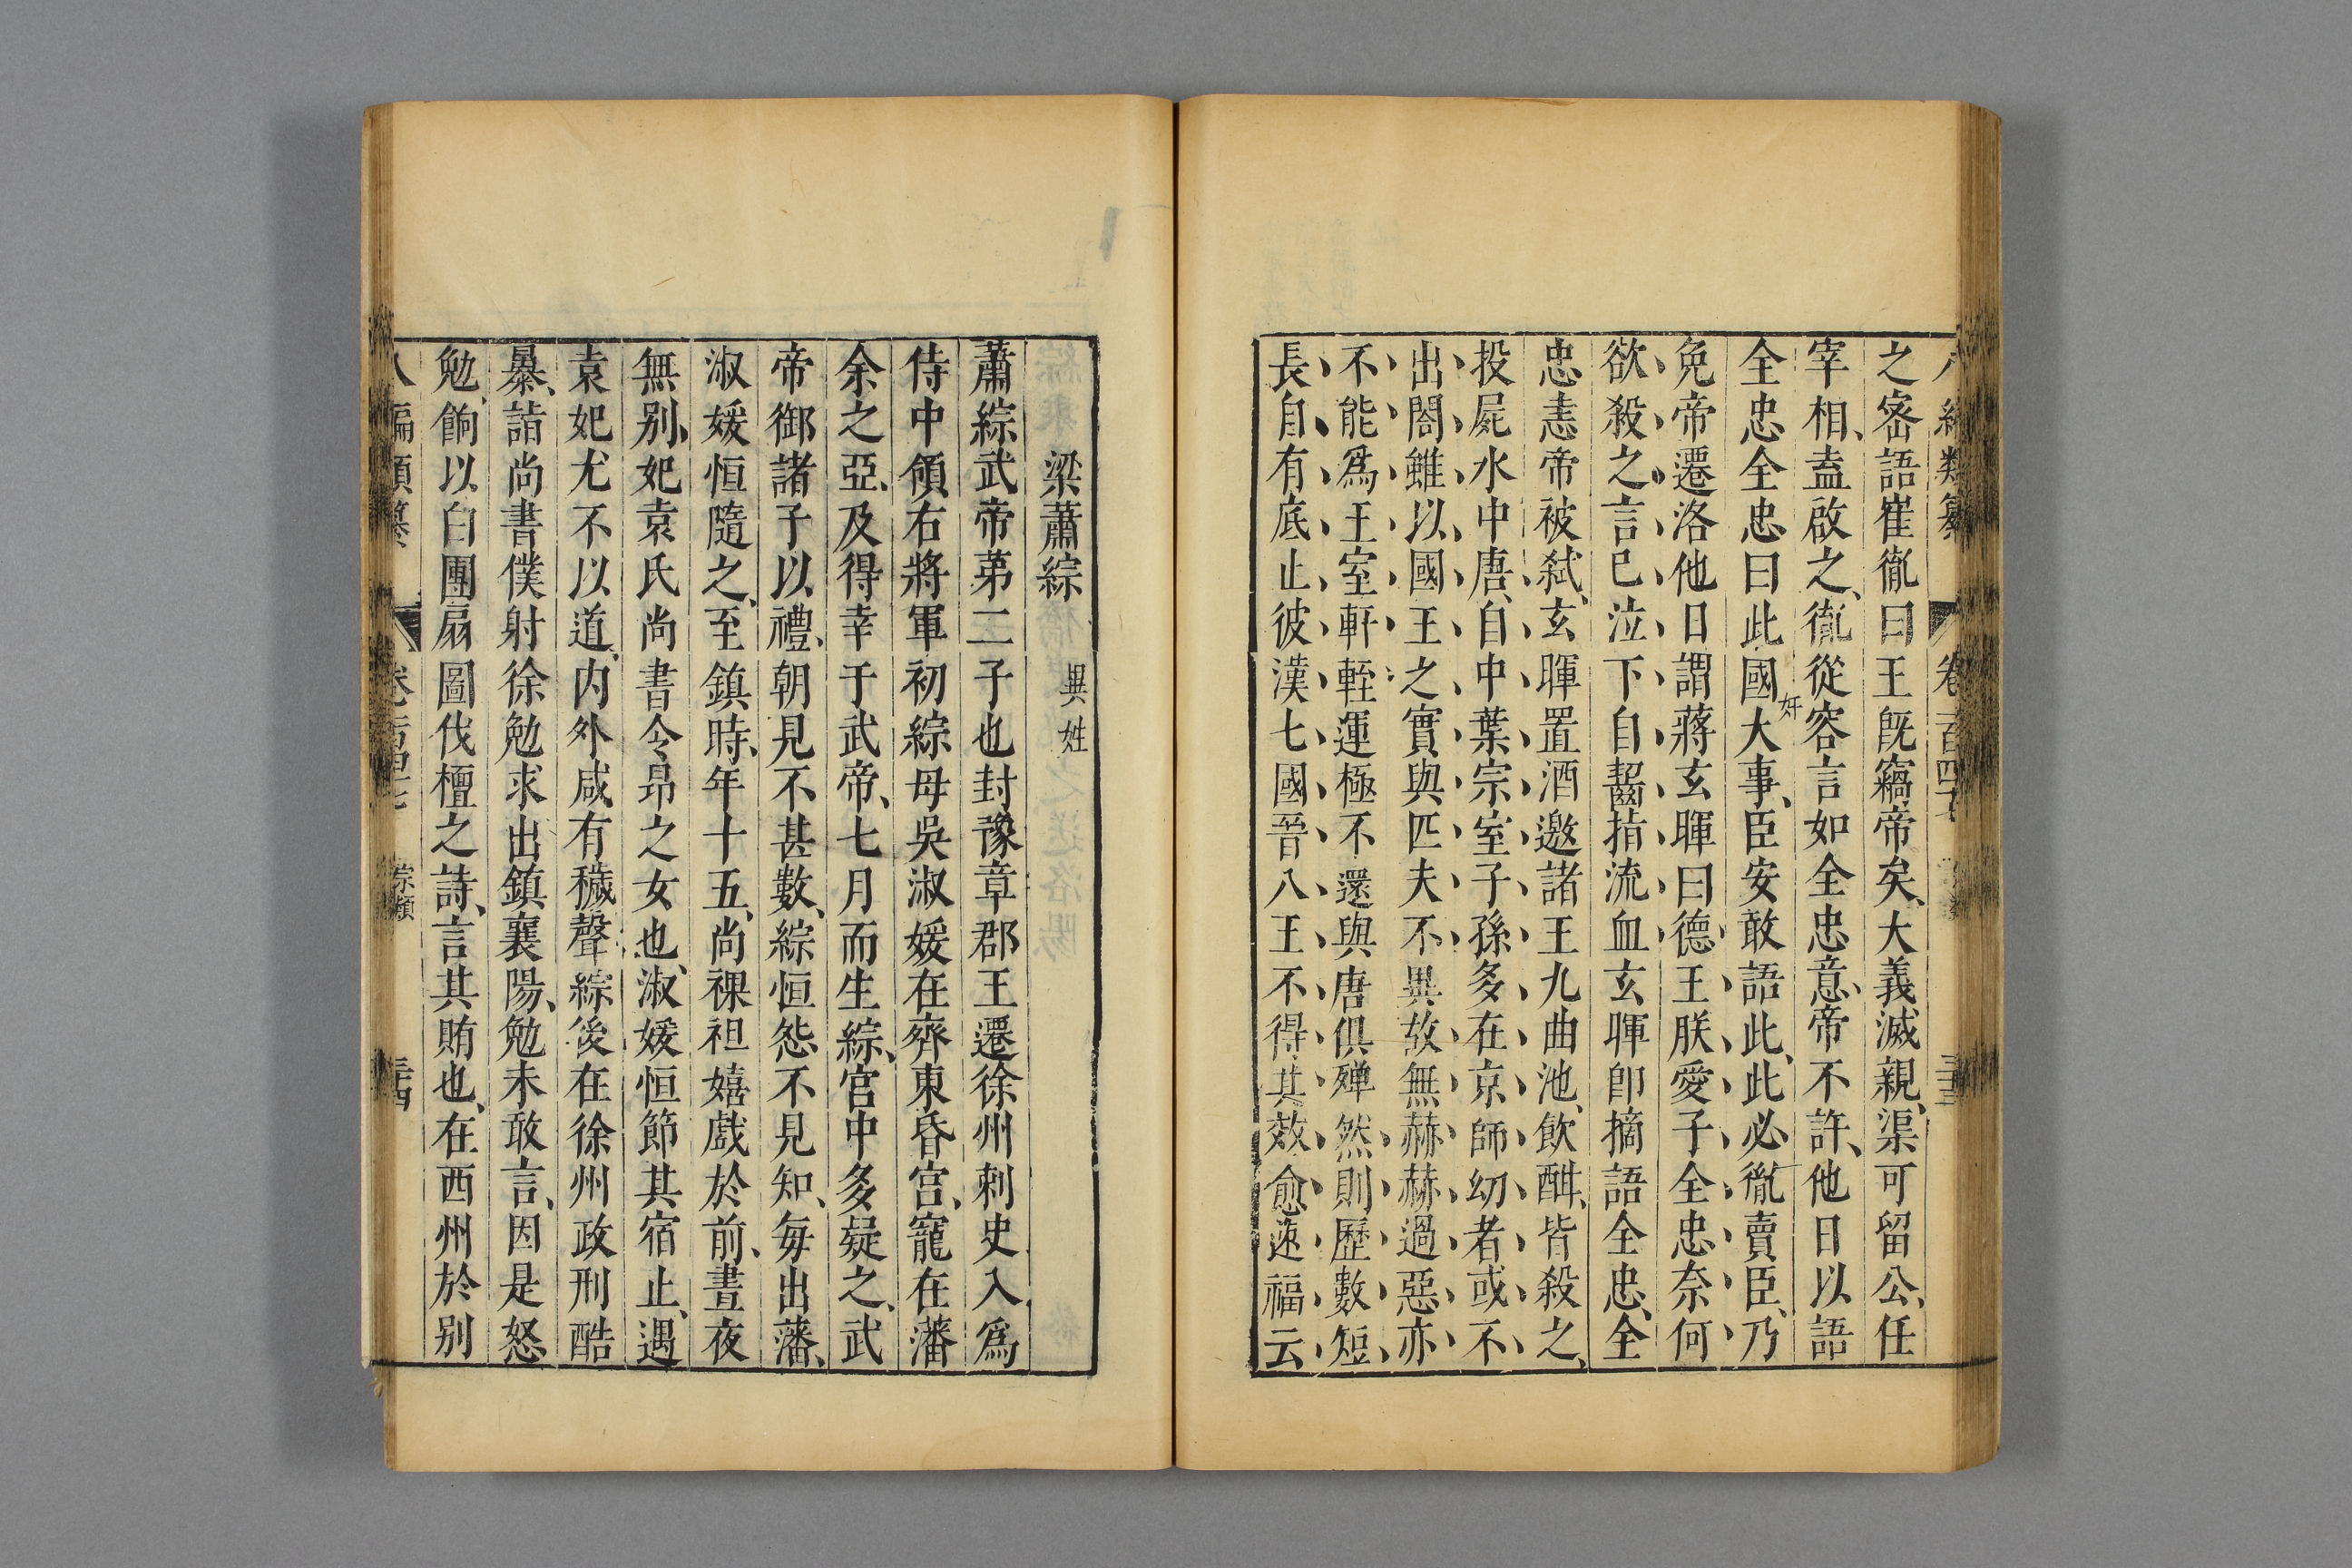 八編類纂 卷一百四十七 三十三
之密語崔胤曰王既竊帝矣大義滅親渠可留公任
宰相盍啟之胤從容言如全忠意帝不許他日以語
全忠全忠曰此國大事臣安敢語此此必胤賣臣乃
奸
免帝遷洛他日謂蔣玄暉曰德王朕愛子全忠奈何
欲殺之言已泣下自齧指流血玄暉卽摘語全忠全
忠恚帝被弑玄暉置酒邀諸王九曲池飲酣皆殺之
投屍水中唐自中葉宗室子孫多在京師幼者或不
出閤雖以國王之實與匹夫不異故無赫赫過惡亦
不能爲王室軒輊運極不還與唐俱殫然則歷數短
長自有底止彼漢七國晉八王不得其效愈速福云
梁蕭綜 異姓
蕭綜武帝第二子也封豫章郡王遷徐州刺史入爲
侍中領右將軍初綜母吳淑媛在齊東昏宮寵在潘
余之亞及得幸于武帝七月而生綜宮中多疑之武
帝御諸子以禮朝見不甚數綜恒怨不見知每出藩
淑媛恒隨之至鎮時年十五尚裸袒嬉戲於前晝夜
無別妃袁氏尚書令昂之女也淑媛恒節其宿止遇
袁妃尤不以道內外咸有穢聲綜後在徐州政刑酷
暴詣尚書僕射徐勉求出鎮襄陽勉未敢言因是怒
勉餉以白團扇圖伐檀之詩言其賄也在西州於別
八編類纂 卷一百四十七 宗類 三十四